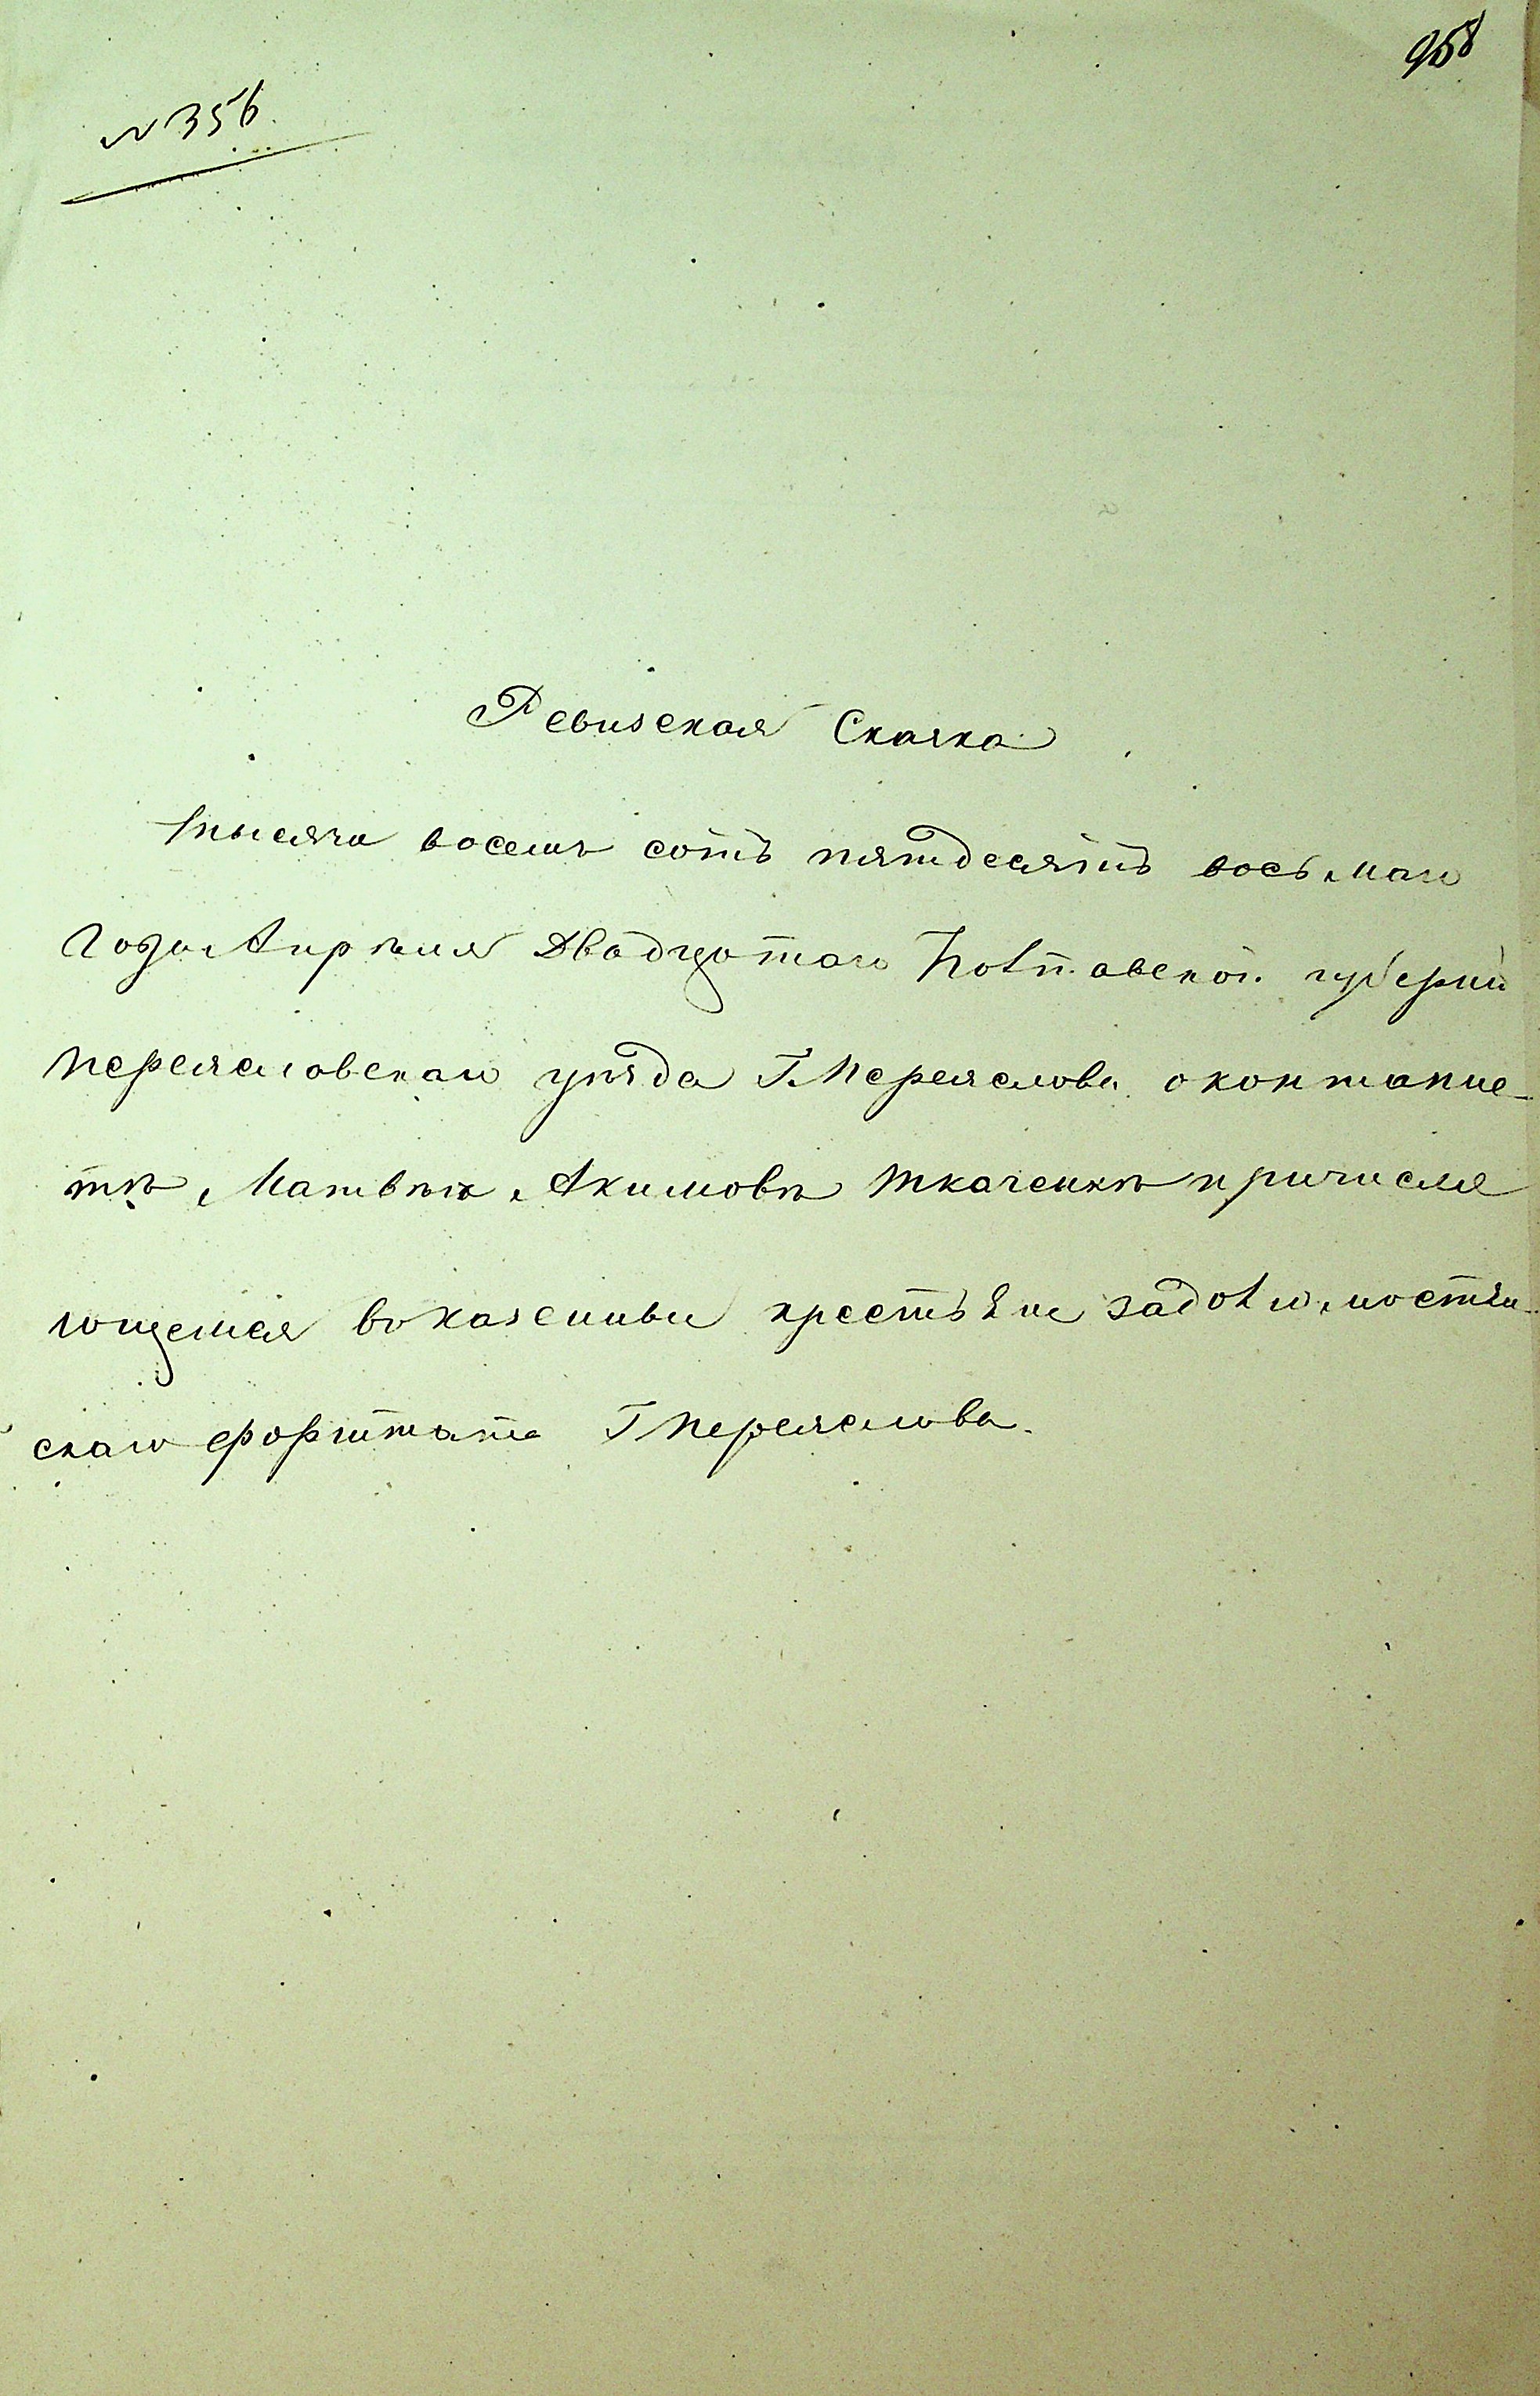 958
№ 356.
Ревизская Сказка
тысяча восемъ сотъ пятдесятъ восьмаго
года Апрѣля Двадцатаго Полтавской губерніи
Переяславскаго уѣзда Г. Переяслова о контанис-
тѣ Матвѣѣ Акимовѣ Ткаченкѣ причисля
ющемся в казенныи крестьяне задолтомостян-
скаго форштата Г Переяслова.